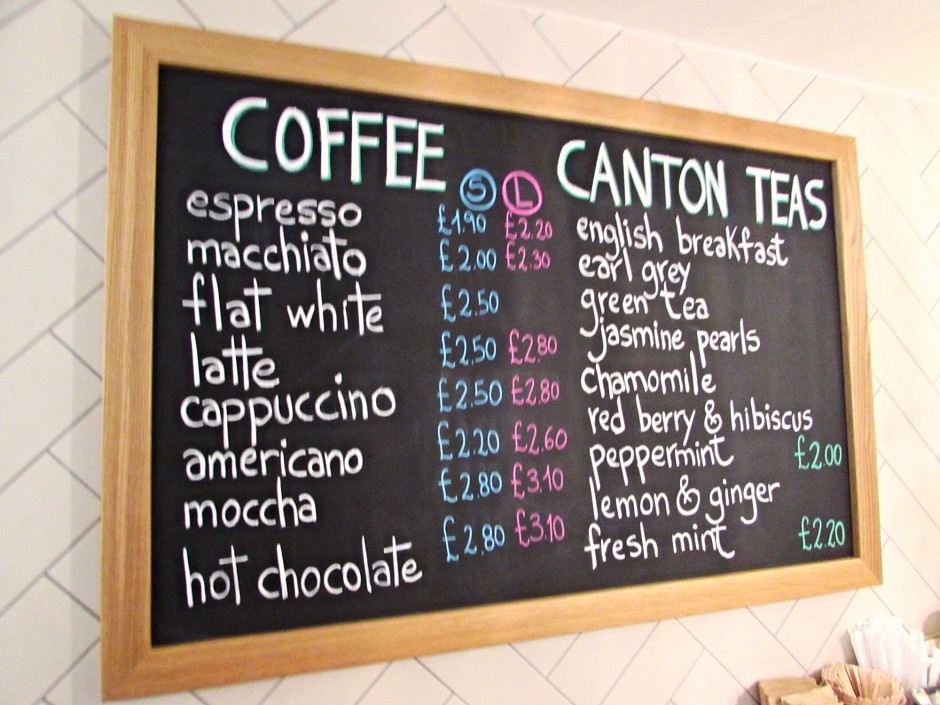 COFFEE S L
espresso £1.90 £2.20
macchiato £2.00 £2.30
flat white £2.50
latte £2.50 £2.80
cappuccino £2.50 £2.80
americano £2.20 £2.60
moccha £2.80 £3.10
hot chocolate £2.80 £3.10
CANTON TEAS
english breakfast
earl grey
green tea
jasmine pearls
chamomile
red berry & hibiscus
peppermint £2.00
lemon & ginger
fresh mint £2.20